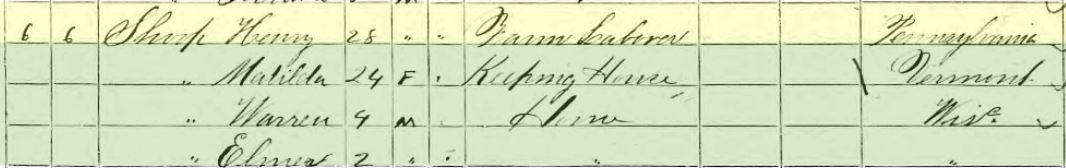 6 6 Shup Henry 28 " " Farm Laborer Pennsylvania
" Matilda 24 F " Keeping House Vermont
" Warren 4 M " Home Wisc.
" Elmer 2 " " " "